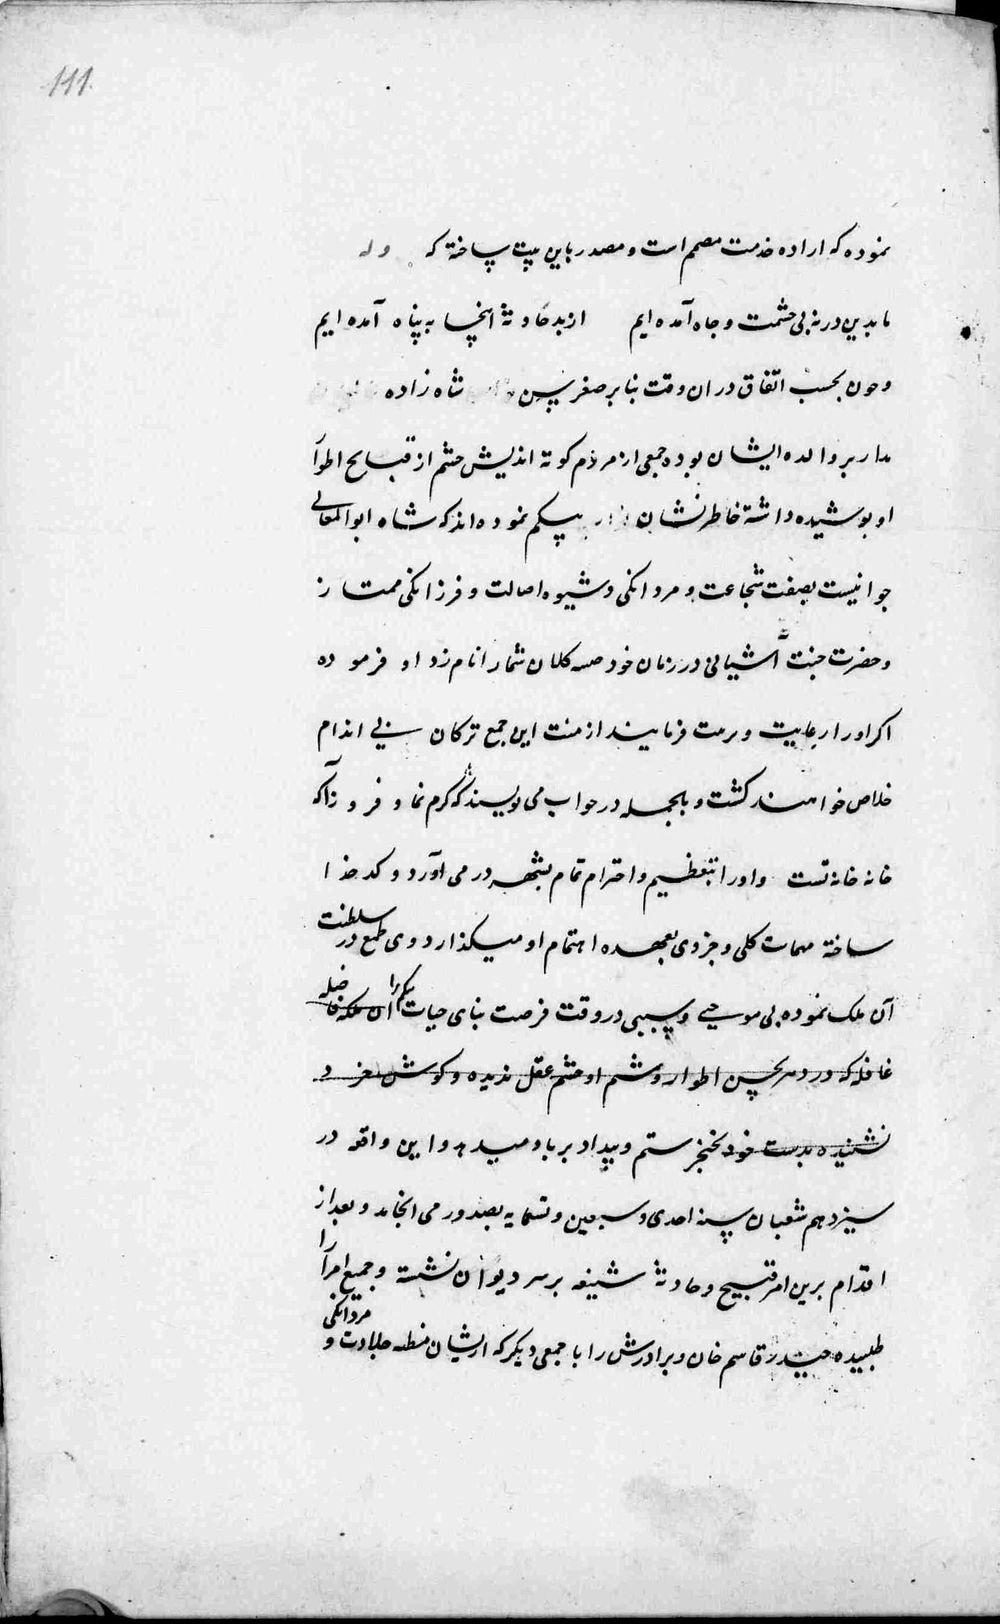 111
نموده که اراده خدمت مصمم است و مصدر باین بیت ساخته که وله
ما بدین در نه پی حشمت و جاه آمده ایم از بد حادثه اینجا به پناه آمده ایم
و چون بحسب اتفاق دران وقت بنا بر صغر سن شاه زاده
مدار بر والده ایشان بوده جمعی از مردم کوته اندیش چشم از قبایح اطوار
او پوشیده داشته خاطر نشان بیکم نموده اند که شاه ابو المعالی
جوانیست بصفت شجاعت و مردانکی و شیوه اصالت و فرزانکی ممتاز
و حضرت جنت آشیانی در زمان خود صبیه کلان شما را نامزد او فرموده
اکر او را رعایت و مرمت فرمایند از منت این جمع ترکان بی اندام
خلاص خواهند کشت و بالجمله در جواب می نویسند که کرم نما و فرود آ که
خانه خانه تست و او را بتعظیم و احترام تمام بشهر در می آورد و کدخدا
ساخته مهمات کلی و جزوی بعهده اهتمام او میکذارد و وی طمع در سلطنت
آن ملک نموده بی موجبی و سببی در وقت فرصت بنای حیات بیکم را آن ملکه فاضله
عاقله که در دهر بحسن اطوار و شیم او چشم عقل ندیده و کوش خرد
نشنیده بدست خود بخنجر ستم و بیداد بر باد میدهد و این واقعه در
سیزدهم شعبان سنه احدی و سبعین و تسعمایه بصدور می انجامد و بعد از
اقدام برین امر قبیح و حادثه شنیعه بر سر دیوان نشسته و جمیع امرا را
طلبیده حیدر قاسم خان و برادرش را با جمعی دیکر که ازیشان مظنه جلادت و مردانکی